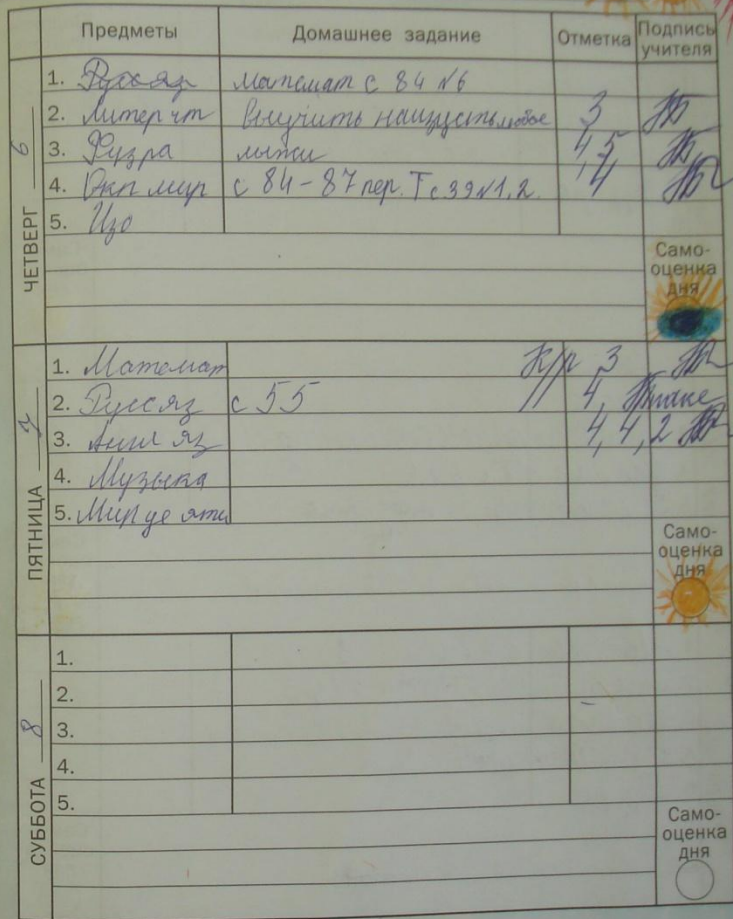 Предметы Домашнее задание Отметка Подпись учителя
ЧЕТВЕРГ 6
1. Русс яз математ с 84 №6
2. Литер чт Выучить наизусть любое 3
3. Физра лыжи 4,5
4. Окр мир с 84-87 пер. Т с 39 №1,2. 4
5. Изо
Само-
оценка
дня
ПЯТНИЦА 7
1. Математ К/р 3
2. Русс яз с 55 4,
3. Англ яз 4,4,2
4. Музыка
5. Мир де
Само-
оценка
дня
СУББОТА 8
1.
2.
3.
4.
5.
Само-
оценка
дня